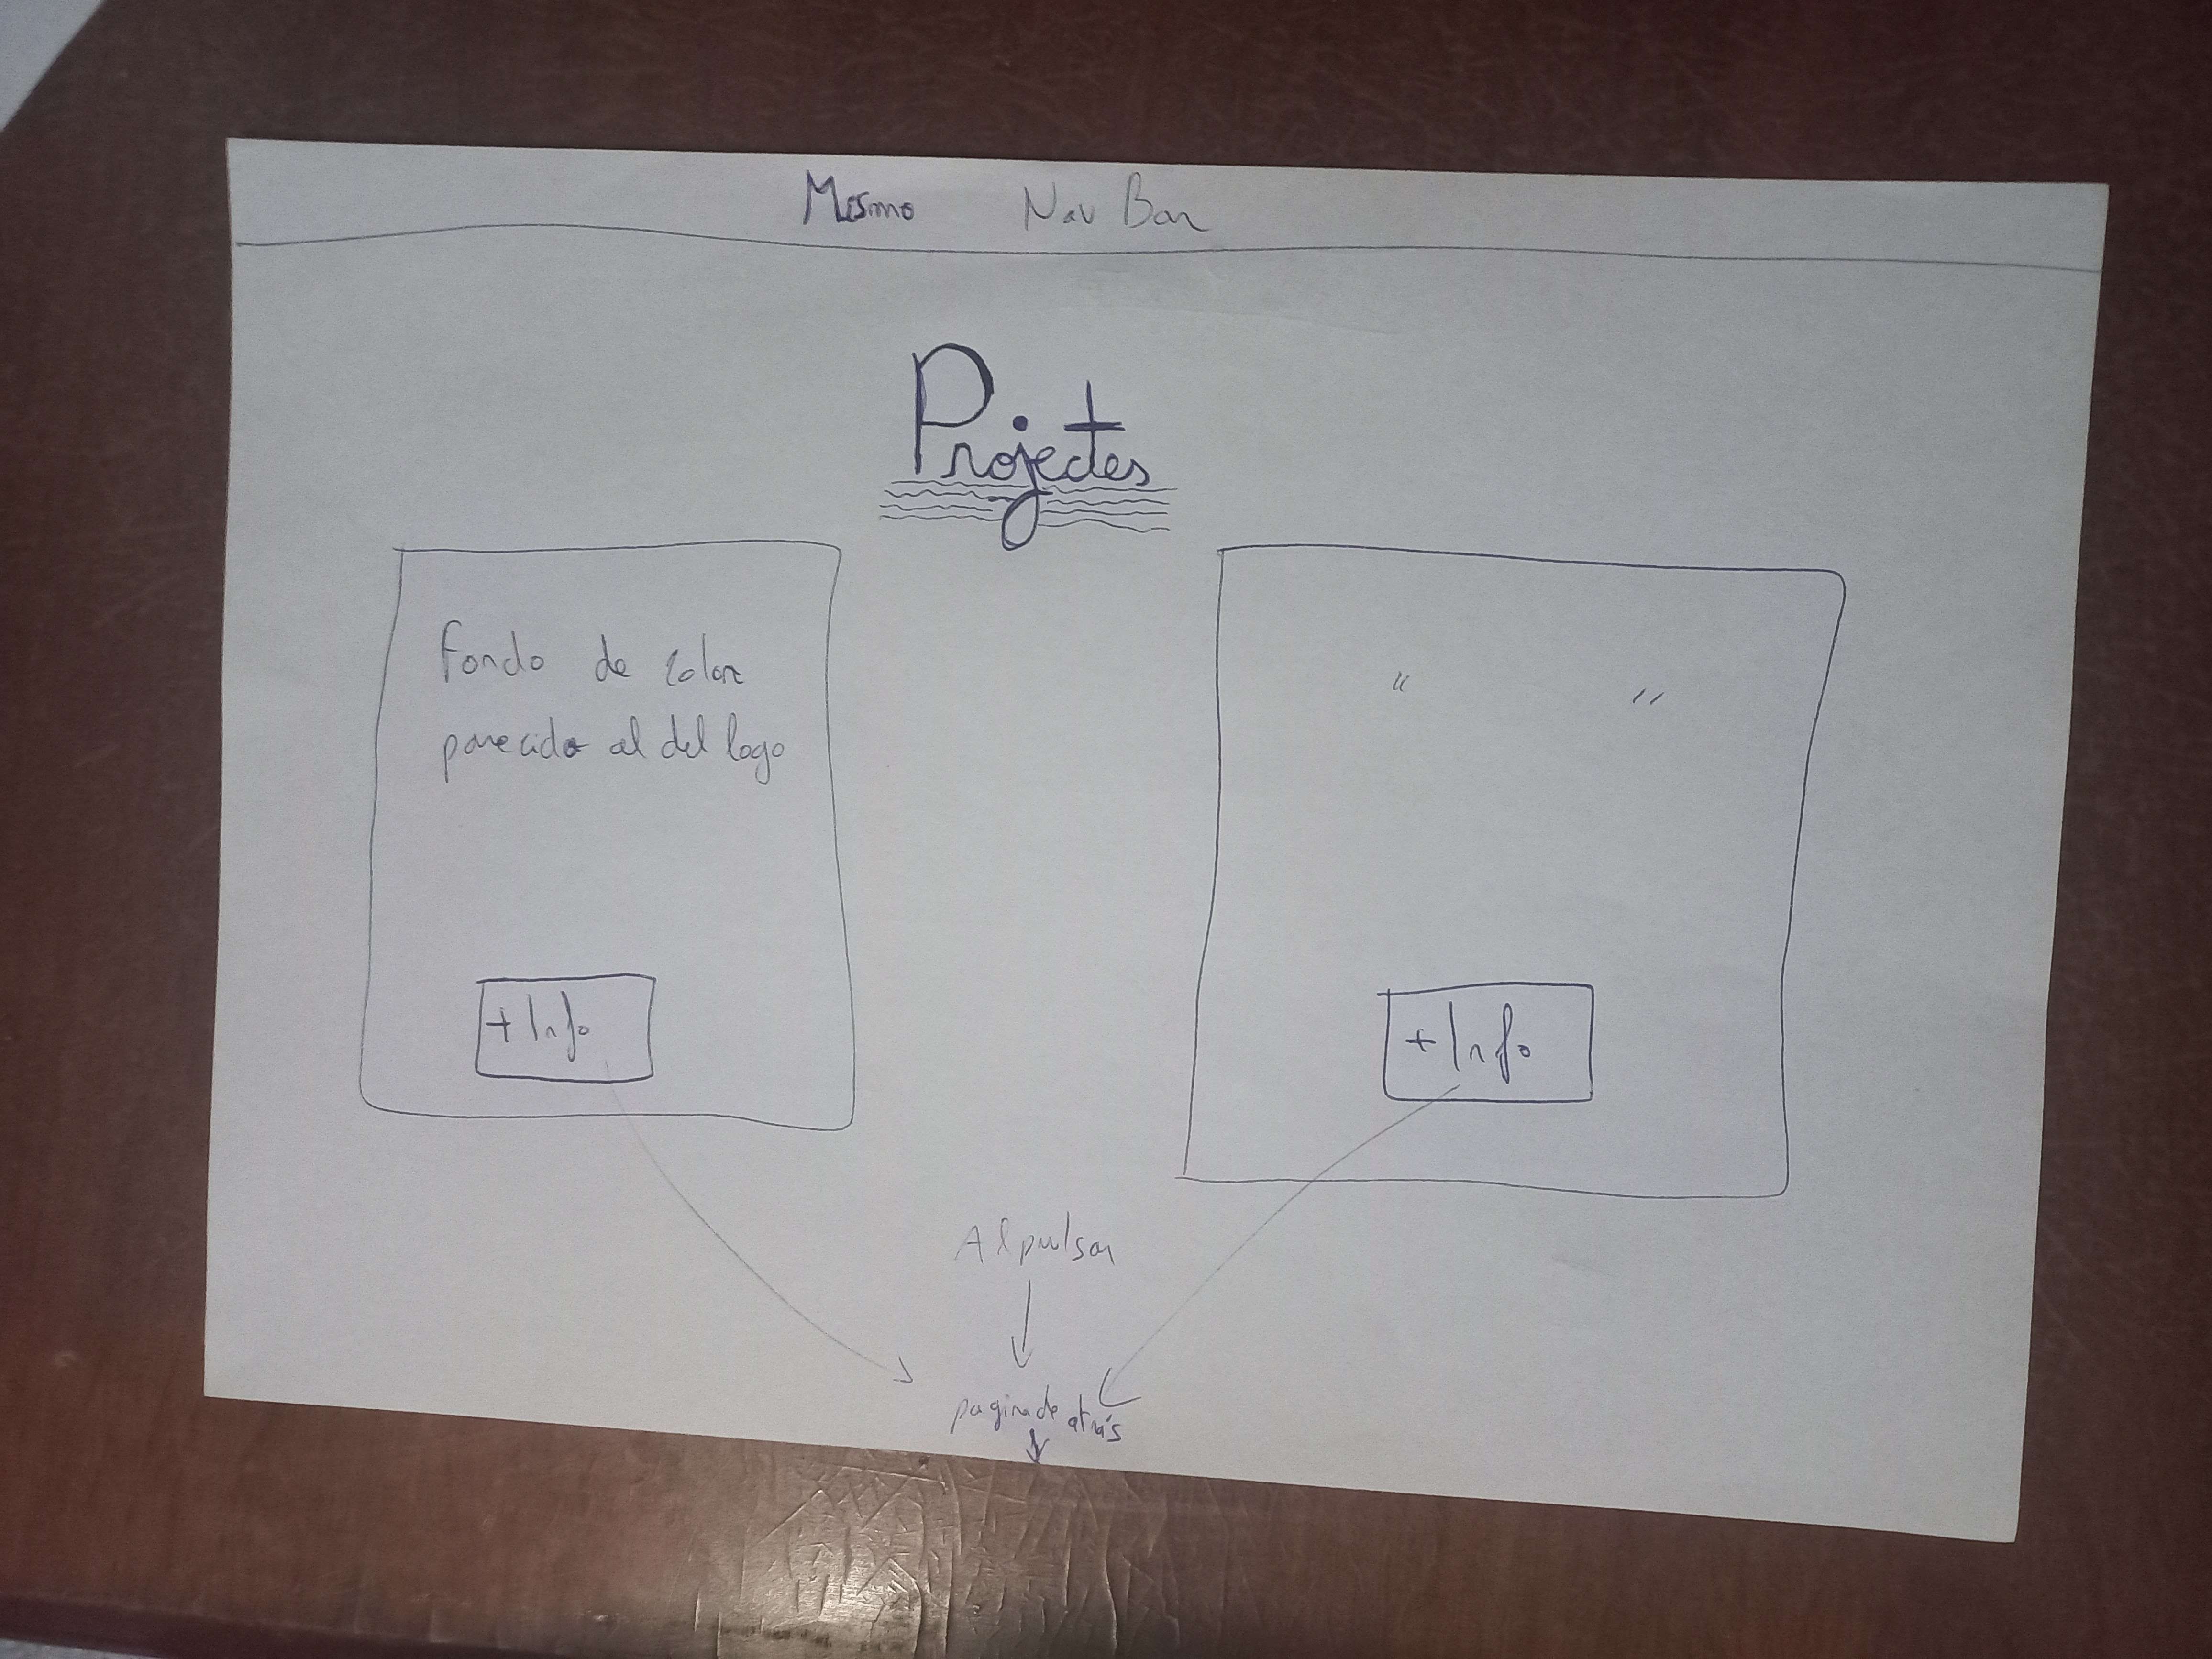 Mismo Nav Bar
Projectes
Fondo de color
parecido al del logo
"    "
+ Info
+ Info
Al pulsar
pagina de atrás